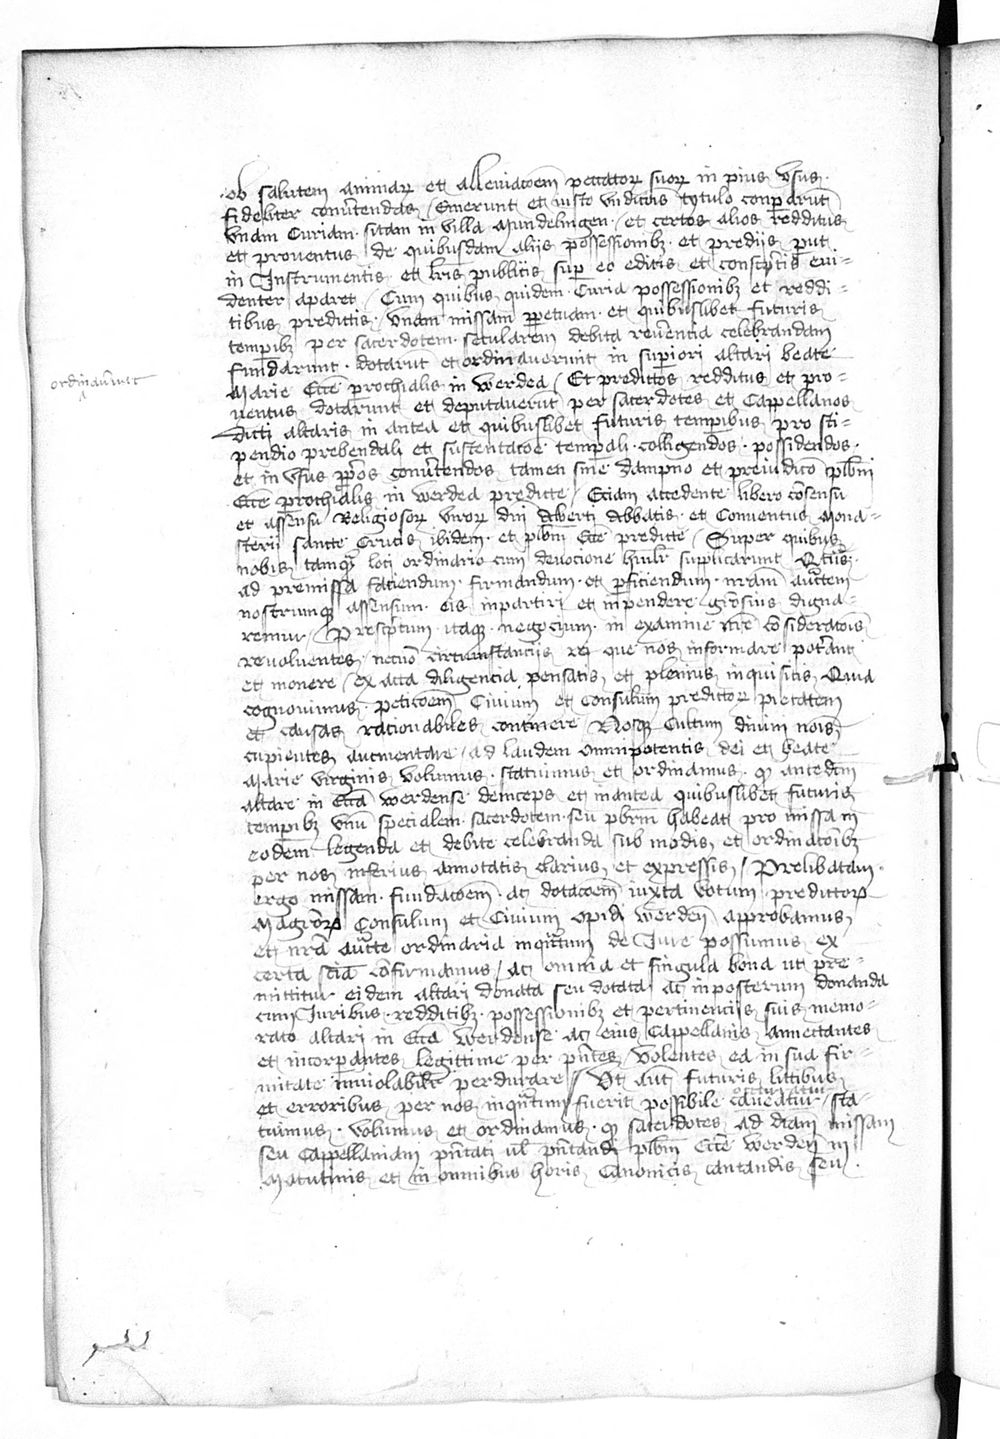 ob salutem animar et alleuiacoem peccator suor in pius vsus
fideliter conu'tendas / Emerunt et iusto vndicois tytulo conpararūt
vnam Curiam sitam in villa Mundelingen / et certos alios redditus
et prouentus de quibusdam alijs possessionibz et predijs put
in Instrumentis et lris publicis sup eo editis et conscptis eui=
denter aparet / Cum quibus quidem Curia possessionibz et reddi=
tibus predictis vnam missam ppetuam et quibuslibet futuris
tempibz per sacerdotem secularem debita reu'encia celebrandam
fundarunt dotarūt et ordinauerunt in supiori altari beate
ordinau'unt
Marie Ecce prochialis in werdea / Et predictos redditus et pro=
uentus dotarunt et deputauerūt per sacerdotes et Cappellanos
dicti altaris in antea et quibuslibet futuris tempibus pro sti=
pendio prebendali et sustentacoe tempali colligendos possidendos
et in vsus ppos conu'tendos tamen sine dampno et preiudico plbni
Ecce prochialis in werdea predicte / Eciam accedente libero cōsensu
et assensu Religiosor viror dni Abbatis et Conuentus Mona=
sterij sancte Crucis ibidem et plbni Ecce predicte / Super quibus
nobis tamqz loci ordinario cum deuocione hūilr supplicarunt
ad premissa faciendum firmandum et pficiendum nram auctem
nostrumqz assensum eis inpartiri et inpendere grosius digna=
remur / Prescptum itaqz negocium in examine nre cōsideracois
reuoluentes necnō circumstancijs rei que nos informare pot'ant
et monere / ex acta diligencia pensatis et plenius inquisitis Quia
cognouimus peticoem Ciuium et Consulum predictor pietatem
et causas racionabiles continere / Nosqz Cultum diuini nois
cupientes aucmentare / ad laudem omnipotentis dei et beate
Marie virginis volumus statuimus et ordinamus qz antedcm
altare in Ecca werdense deinceps et inantea quibuslibet futuris
tempibz vnū specialem sacerdotem seu pbrm habeat pro missa in
eodem legenda et debite celebranda sub modis et ordinacoibz
per nos inferius annotatis clarius et expressis / Prelibatam
ergo missam fundacoem ac dotacoem iuxta votum predictor
Magror Consulum et Ciuium opidi werden approbamus
et nra aucte ordinaria inqntum de Iure possumus ex
certa scia cōfirmamus / ac omnia et singula bona ut pre=
mittitur eidem altari donata seu dotata ac inposterum donanda
cum Iuribus redditibz possessionibz et pertinencijs suis memo=
rato altari in Ecca werdense ac eius Cappellanis annectantes
et incorpantes legittime per pntes / volentes ea in sua fir=
mitate inuiolabilr perdurare / Vt aut futuris littibus
et erroribus per nos inqntum fuerit possibile caueatur / sta=
tuimus volumus et ordinamus qz sacerdotes ad dcam missam
seu Cappellaniam pntati vl pntandi plbm Ecce werden in
Matutinis et in omnibus horis Canonicis cantandis seu